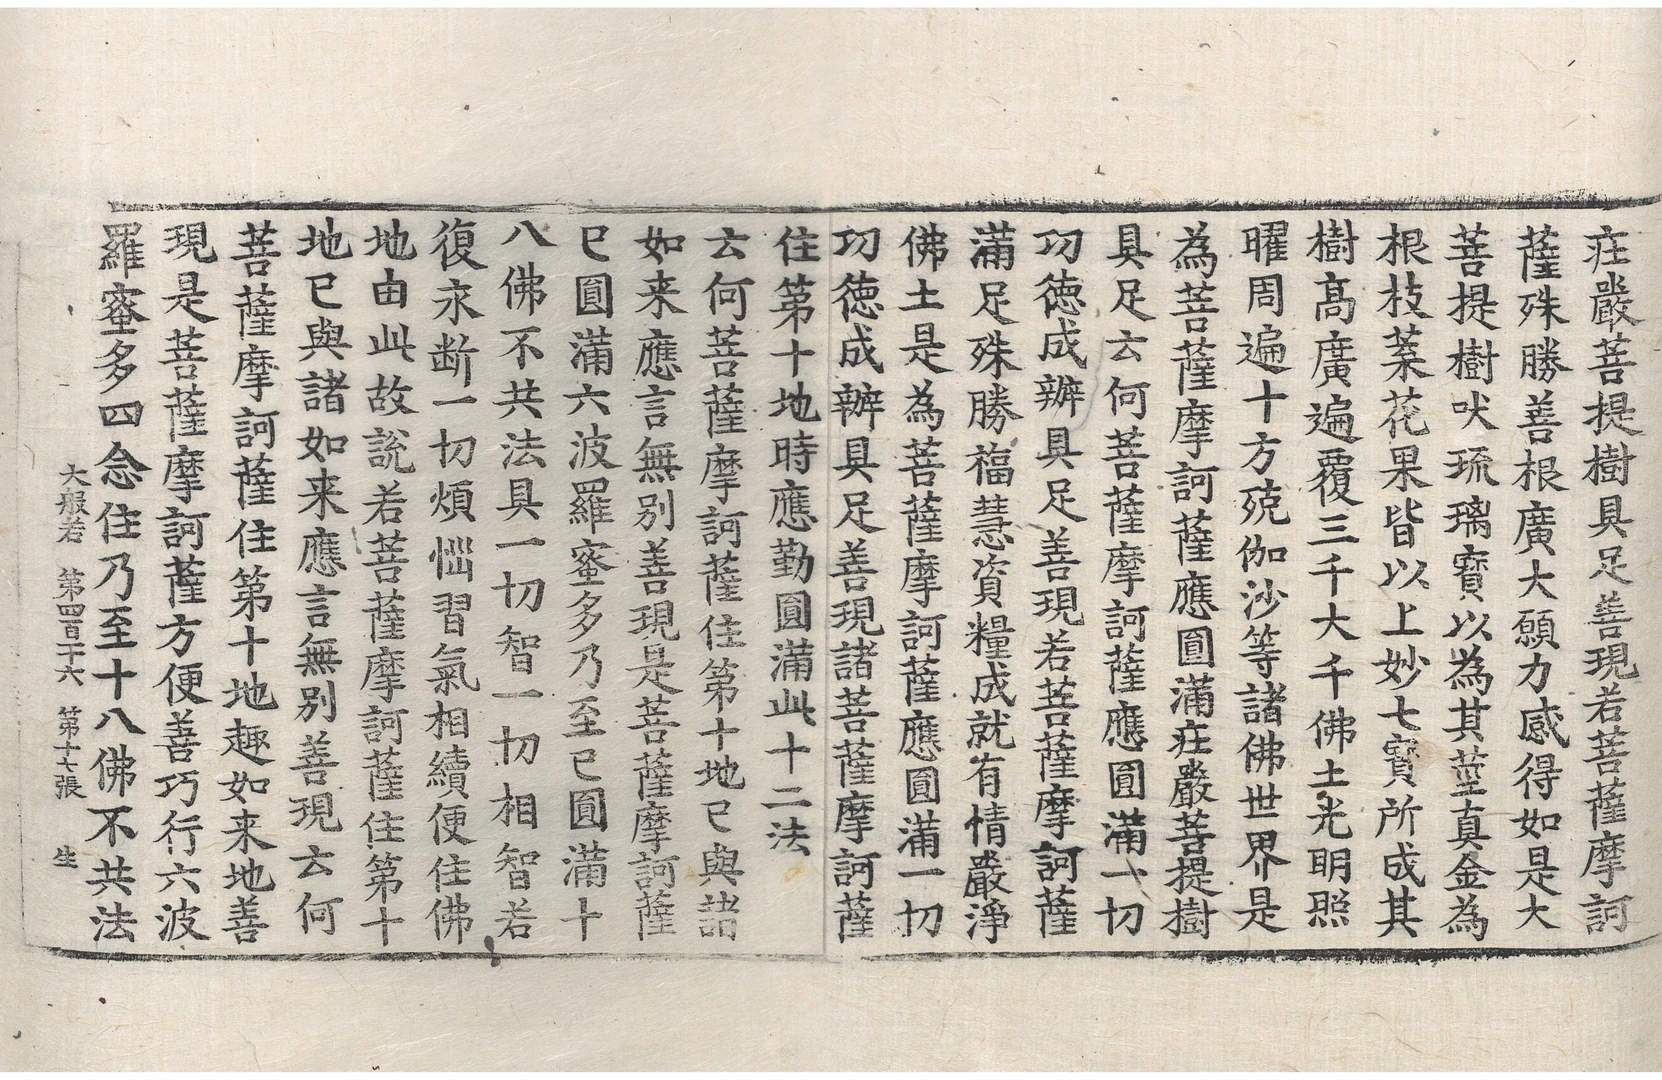 莊嚴菩提樹具足善現若菩薩摩訶
薩殊勝善根廣大願力感得如是大
菩提樹吠琉璃寶以為其莖真金為
根枝葉花果皆以上妙七寶所成其
樹高廣遍覆三千大千佛土光明照
曜周遍十方殑伽沙等諸佛世界是
為菩薩摩訶薩應圓滿莊嚴菩提樹
具足云何菩薩摩訶薩應圓滿一切
功德成辦具足善現若菩薩摩訶薩
滿足殊勝福慧資糧成就有情嚴淨
佛土是為菩薩摩訶薩應圓滿一切
功德成辦具足善現諸菩薩摩訶薩
住第十地時應勤圓滿此十二法
云何菩薩摩訶薩住第十地已與諸
如来應言無別善現是菩薩摩訶薩
已圓滿六波羅蜜多乃至已圓滿十
八佛不共法具一切智一切相智若
復永断一切煩惱習氣相續便住佛
地由此故說若菩薩摩訶薩住第十
地已與諸如来應言無別善現云何
菩薩摩訶薩住第十地趣如来地善
現是菩薩摩訶薩方便善巧行六波
羅蜜多四念住乃至十八佛不共法
大般若 第四百十六 第十七張 生